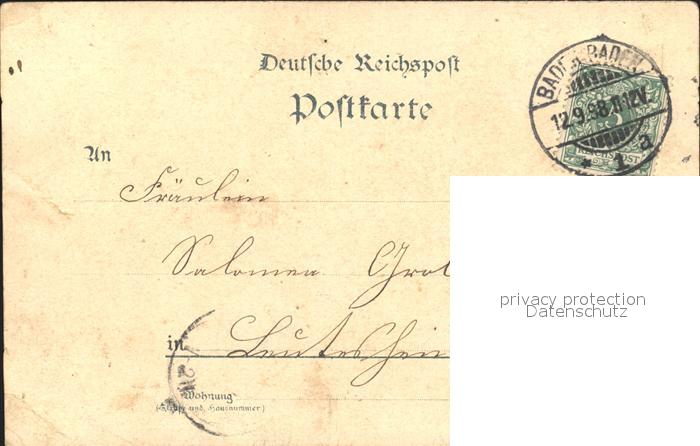 Deutsche Reichspost
Postkarte
BADEN-BADEN
12.9.98.11-12V.
* 1 a
3
REICHSPOST
An
Fräulein
Salomea
in Leutesheim
Wohnung
(Straße und Hausnummer)
privacy protection
Datenschutz